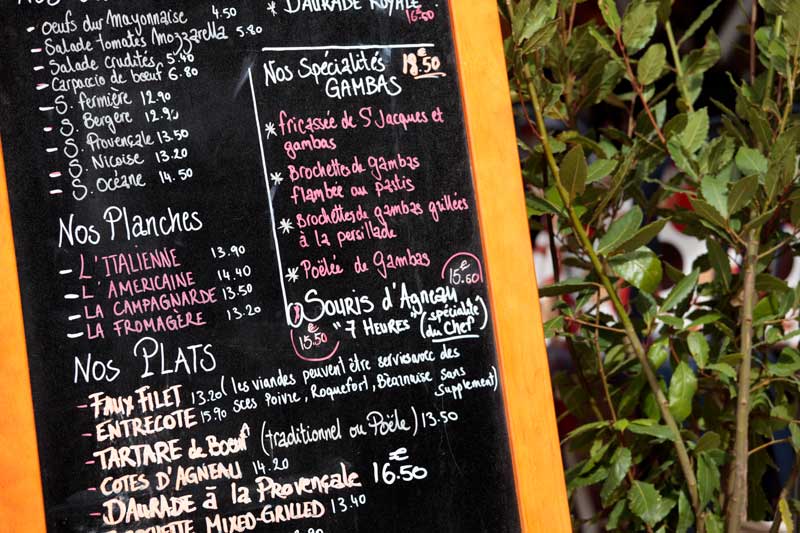 Oeufs dur Mayonnaise 4.50
Salade tomates Mozzarella 5.80
Salade crudités 5.40
Carpaccio de boeuf 6.80
S. fermière 12.90
S. Bergère 12.90
S. Provençale 13.50
S. Nicoise 13.20
S. Océane 14.50
Nos Planches
L'ITALIENNE 13.90
L'AMERICAINE 14.40
LA CAMPAGNARDE 13.50
LA FROMAGÈRE 13.20
* DAURADE ROYALE
16.50
Nos Spécialités 18.50€
GAMBAS
* fricassée de S Jacques et
gambas
* Brochettes de gambas
flambée au pastis
* Brochettes de gambas grillées
à la persillade
* Poëlée de Gambas
15.50€
Souris d'Agneau
"7 HEURES" (spécialité
du Chef)
15.50€
Nos PLATS
- FAUX FILET 13.20 (les viandes peuvent être servies avec des
- ENTRECOTE 15.90 sces Poivre, Roquefort, Béarnaise sans
supplement)
- TARTARE de Boeuf (traditionnel ou Poële) 13.50
- COTES D'AGNEAU 14.20
- DAURADE à la Provençale 16.50€
MIXED-GRILLED 13.40